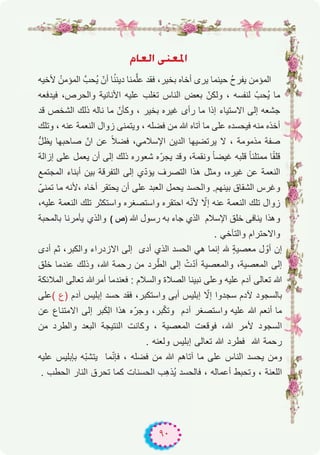 المعنى العام
المؤمن يفرحُ حينما يرى أخاه بخير، فقد علَّمنا ديننا أنْ يُحبَّ المؤمنُ لأخيه
ما يُحبّ لنفسه ، ولكنّ بعض الناس تغلب عليه الأنانية والحرص، فيدفعه
جشعه إلى الاستياء إذا ما رأى غيره بخير ، وكأنّ ما ناله ذلك الشخص قد
أخذه منه فيحسده على ما أتاه الله من فضله ، ويتمنى زوال النعمة عنه ، وتلك
صفة مذمومة ، لا يرتضيها الدين الإسلامي، فضلاً عن انّ صاحبها يظلُّ
قلقًا ممتلئاً قلبه غيضاً ونقمة، وقد يجرّه شعوره ذلك إلى أن يعمل على إزالة
النعمة عن غيره، ومثل هذا التصرف يؤدي إلى التفرقة بين أبناء المجتمع
وغرس الشقاق بينهم. والحسد يحمل العبد على أن يحتقر أخاه ،لأنه ما تمنىّ
زوال تلك النعمة عنه إلّا لأنّه احتقره واستصغره واستكثر تلك النعمة عليه،
وهذا ينافي خلق الإسلام الذي جاء به رسول الله (ص ) والذي يأمرنا بالمحبة
والاحترام والتأخي .
إن أوّل معصيةٍ لله إنما هي الحسد الذي أدى إلى الازدراء والكبر، ثم أدى
إلى المعصية، والمعصية أدّتْ إلى الطَّرد من رحمة الله، وذلك عندما خلق
الله تعالى آدم عليه وعلى نبينا الصلاة والسلام : فعندما أمرالله تعالى الملائكة
بالسجود لآدم سجدوا إلّا إبليس أبى واستكبر، فقد حسد إبليس آدم (ع )على
ما أنعم الله عليه واستصغر آدم وتكّبر، وجرّه هذا الكِبر إلى الامتناع عن
السجود لأمر الله، فوقعت المعصية ، وكانت النتيجة البعد والطرد من
رحمة الله فطرد الله تعالى إبليس ولعنه .
ومن يحسد الناس على ما أتاهم الله من فضله ، فإنّما يتشبّه بإبليس عليه
اللعنة ، وتحبط أعماله ، فالحسد يُذهِبُ الحسنات كما تحرق النار الحطب .
٩٠